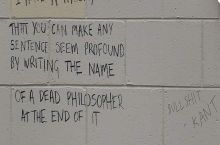 THAT YOU CAN MAKE ANY
SENTENCE SEEM PROFOUND
BY WRITING THE NAME
OF A DEAD PHILOSOPHER
AT THE END OF IT
BULLSHIT
- KANT